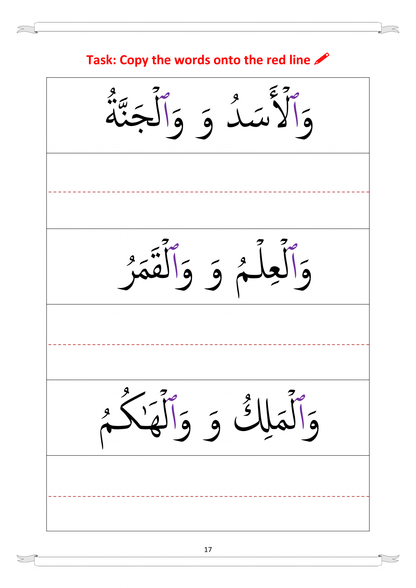 Task: Copy the words onto the red line
وَٱلْأَسَدُ وَ وَٱلْجَنَّةُ
وَٱلْعِلْمُ وَ وَٱلْقَمَرُ
وَٱلْمَلِكُ وَ وَٱلْهَـٰكُمُ
17